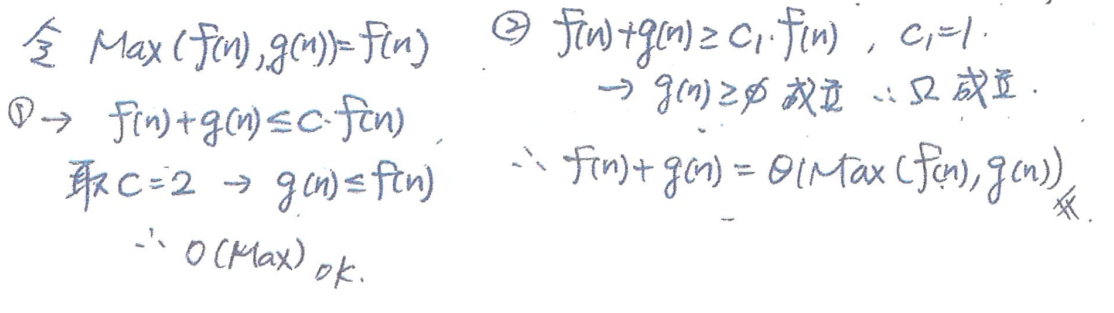 令 Max(f(n),g(n))=f(n)
① → f(n)+g(n)≤c·f(n)
取C=2 → g(n)≤f(n)
∴ O(Max) ok.
② f(n)+g(n)≥C₁·f(n) , C₁=1.
→ g(n)≥∅ 成立 ∴ Ω 成立.
∴ f(n)+g(n)=θ(Max(f(n),g(n))#.